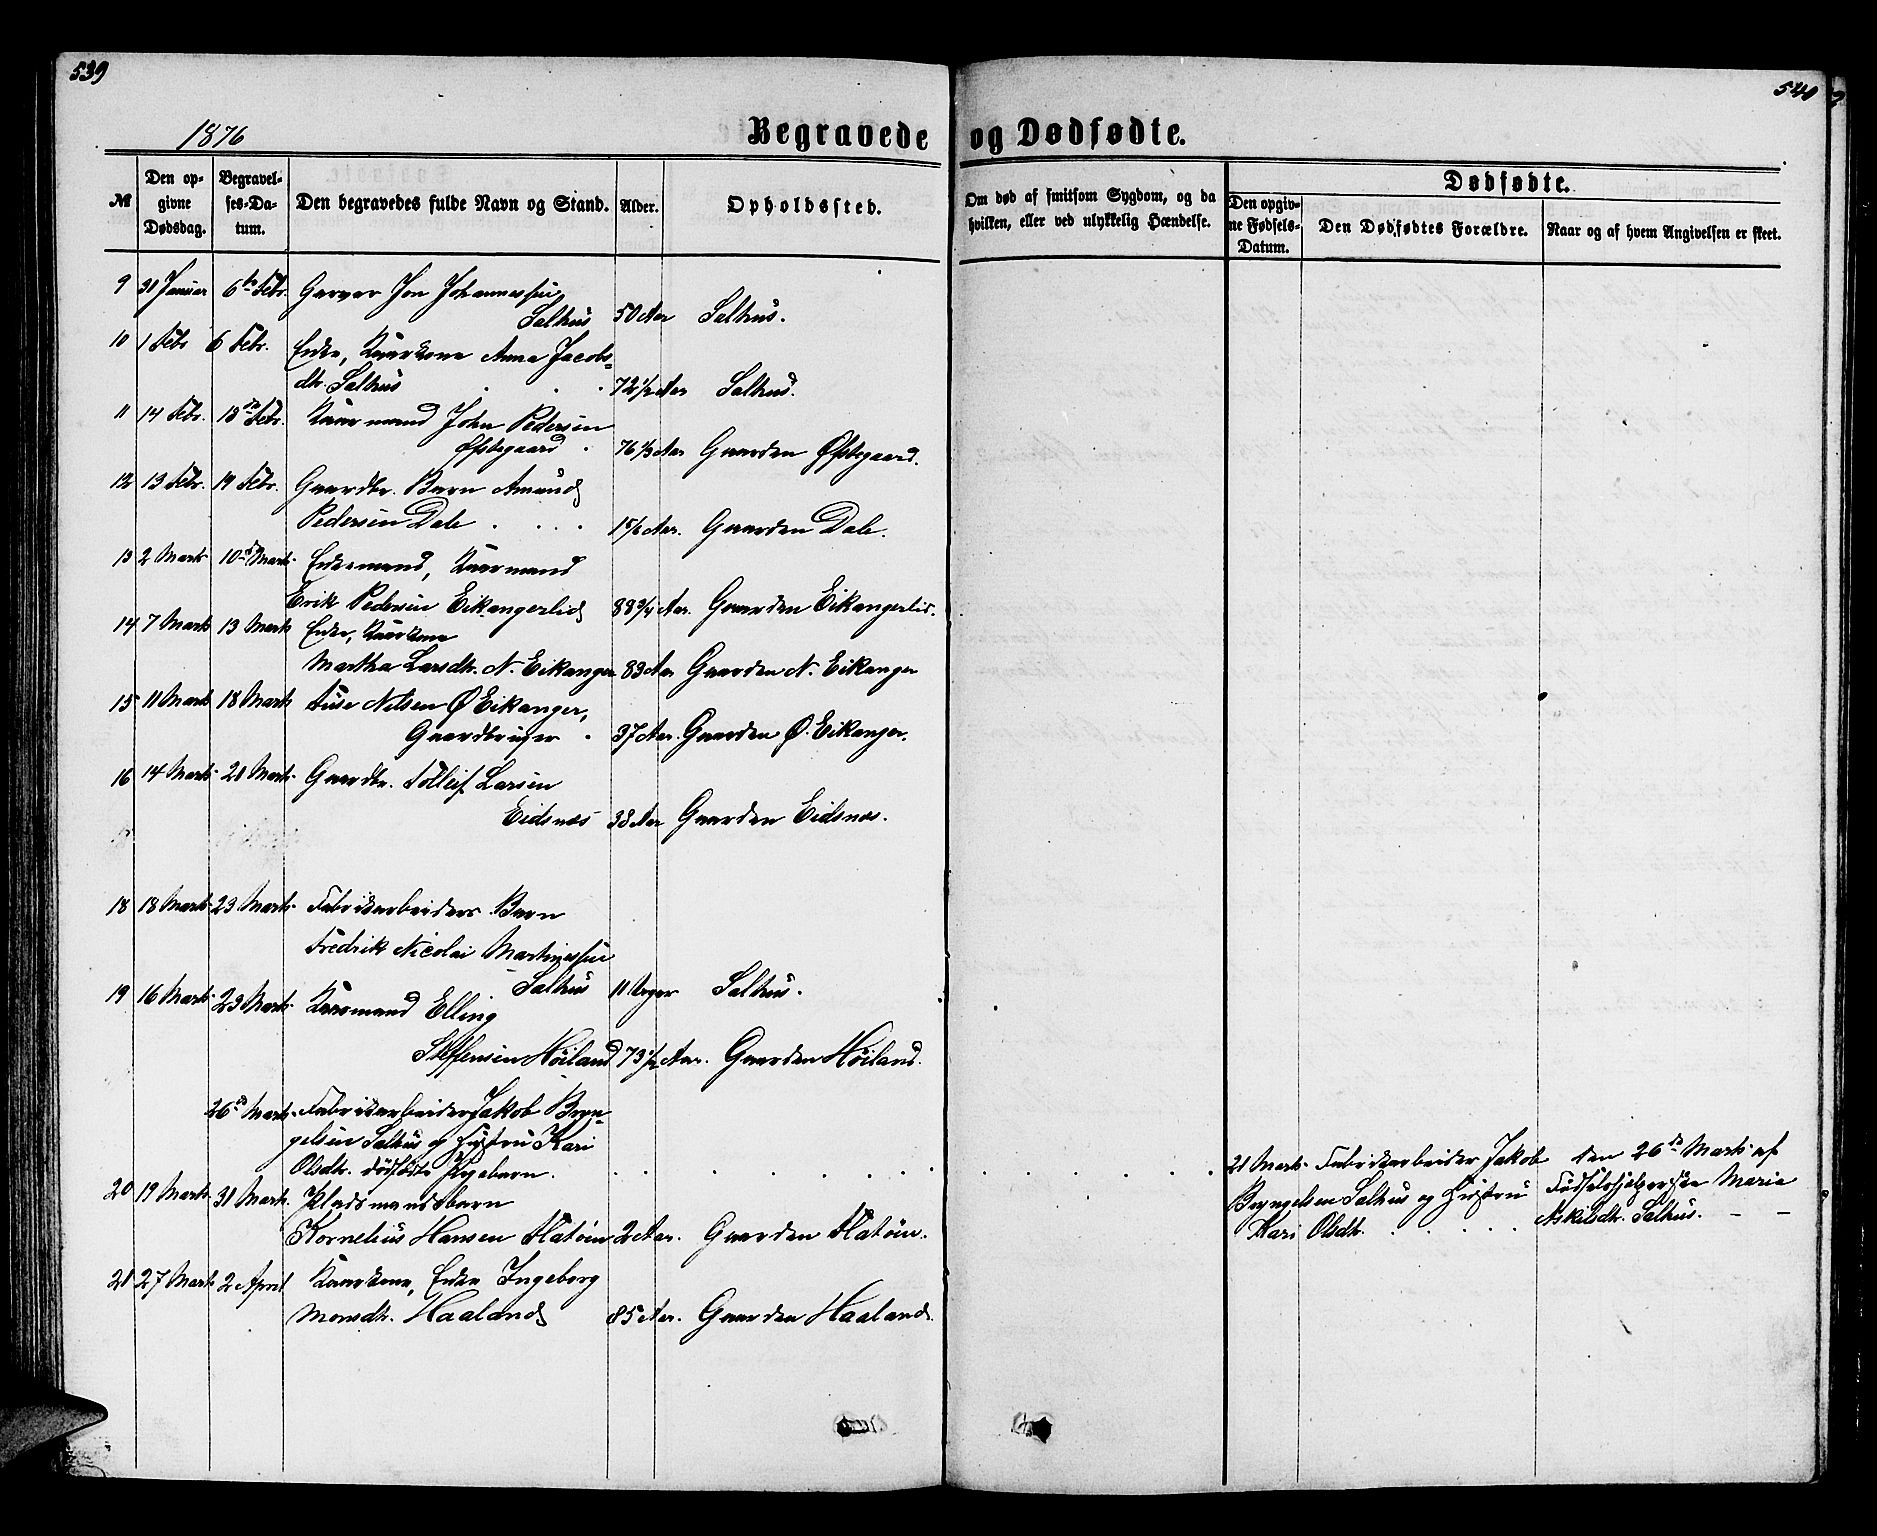 539
540
1876
Begravede og Dødfødte.
№
Den opgivne Dødsdag.
Begravelses-Datum.
Den begravedes fulde Navn og Stand.
Alder.
Opholdssted.
Om død af smitsom Sygdom, og da
hvilken, eller ved ulykkelig Hændelse.
Dødfødte.
Den opgivne Fødsels-Datum.
Den Dødfødtes Forældre.
Naar og af hvem Angivelsen er skeet.
9 31 Januar 6te Febr. Garver Jon Johannessen
Salhus 50 Aar Salhus.
10 1 Febr 6 Febr. Enke, Kaarkone Anna Jacobs=
dtr. Salhus 72 1/2 Aar Salhus.
11 14 Febr. 18de Febr. Kaarmand John Pedersen
Øfstegaard 76 1/3 Aar Gaarden Øfstegaard.
12 13 Febr. 19 Febr. Gaardbr. Barn Amund
Pedersen Dale 1 5/6 Aar. Gaarden Dale.
13 2 Marts 10de Marts Enkemand, Kaarmand
Erik Pedersen Eikangerlid 88 3/4 Aar. Gaarden Eikangerlid.
14 7 Marts 13 Marts Enke, Kaarkone
Martha Larsdtr. N. Eikanger 83 Aar Gaarden N. Eikanger
15 11 Marts 18 Marts Nilsen Ø Eikanger,
Gaardbruger 37 Aar. Gaarden Ø. Eikanger.
16 14 Marts 21 Marts Gaardbr. Tolleif Larsen
Eidsnes 38 Aar Gaarden Eidsnes.
18 18 Marts 23 Marts Fabrikarbeiders Barn
Fredrik Nicolai Martinessen
Salhus 11 Uger Salhus.
19 16 Marts 23 Marts Kaarmand Elling
Steffensen Høiland 73 1/2 Aar. Gaarden Høiland.
26de Marts Fabrikarbeider Jakob Bryn=
gelsen Salhus og Hustru Kari
Olsdtr. dødfødte Pigebarn.
21 Marts Fabrikarbeider Jakob
Bryngelsen Salhus og Hustru
Kari Olsdtr.
den 26de Marts af
Fødselshjelpersken Marie
Askelsdtr. Salhus. — —
20 19 Marts 31 Marts. Pladsmandsbarn
Kornelius Hansen Flatøen 2 Aar. Gaarden Flatøen.
21 27 Marts 2 April Kaarkone, Enke Ingeborg
Monsdtr. Haaland 85 Aar. Gaarden Haaland.